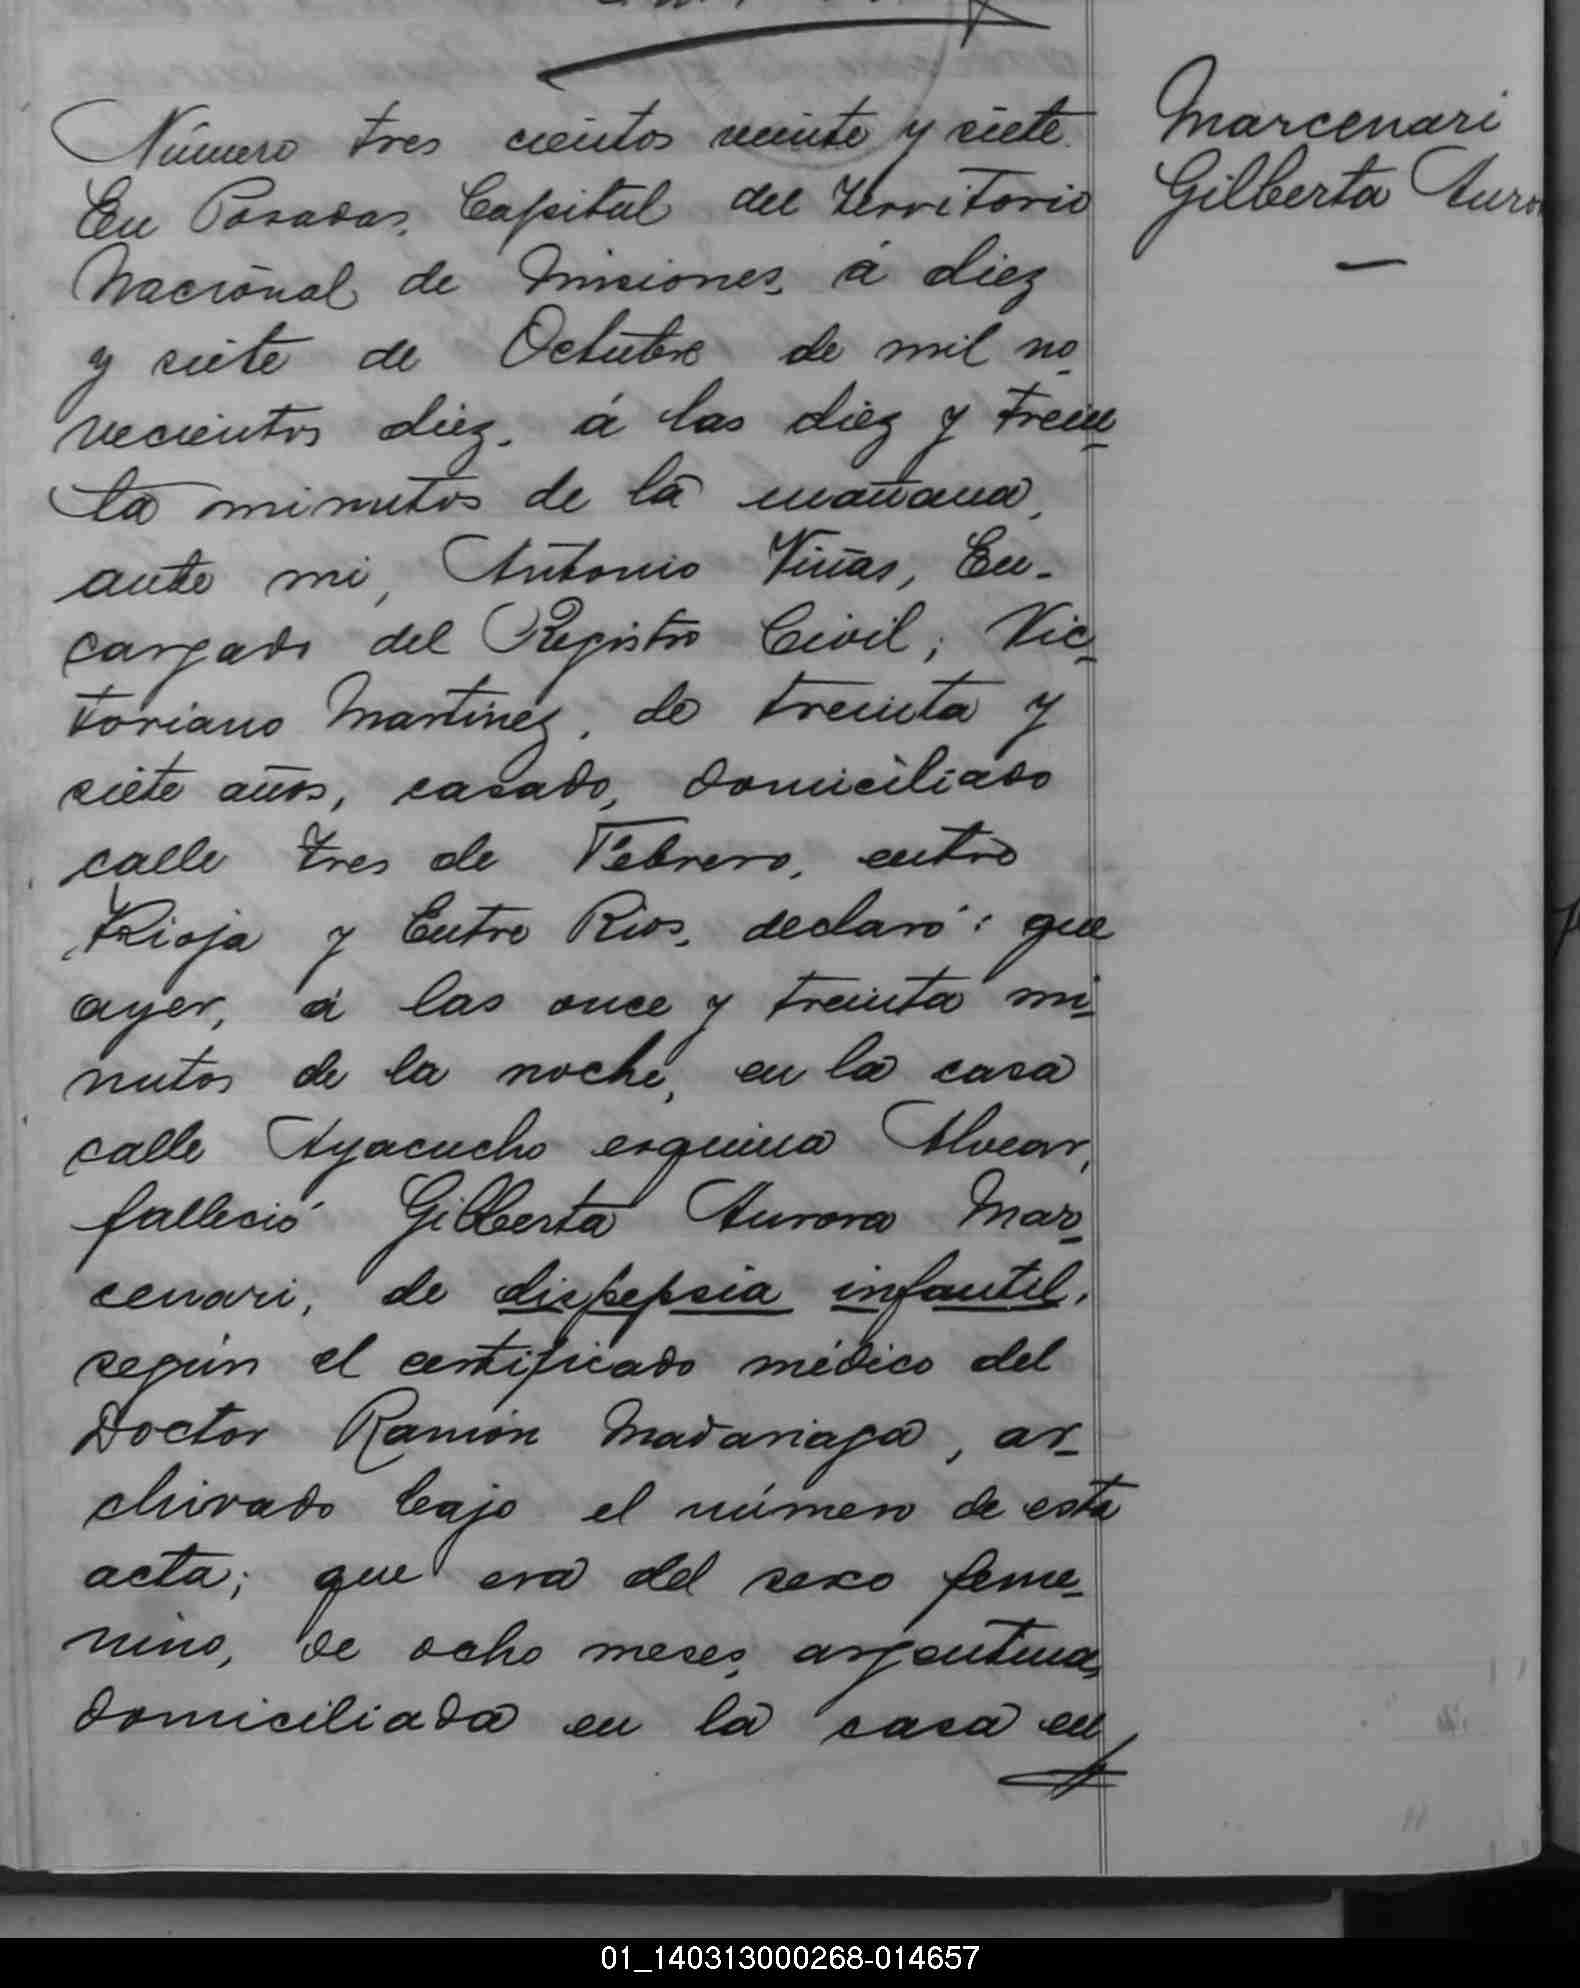 Número tres cientos veinte y siete.
En Posadas, Capital del Territorio
Nacional de Misiones, á diez
y siete de Octubre de mil no-
vecientos diez, á las diez y trein-
ta minutos de la mañana,
ante mi, Antonio Viñas, En-
cargado del Registro Civil; Vic-
toriano Martinez, de treinta y
siete años, casado, domiciliado
calle tres de Febrero, entre
Rioja y Entre Rios, declaró: que
ayer, á las once y treinta mi-
nutos de la noche, en la casa
calle Ayacucho esquina Alvear,
falleció Gilberta Aurora Mar-
cenari, de dispepsia infantil,
según el certificado médico del
Doctor Ramón Madariaga, ar-
chivado bajo el número de esta
acta; que era del sexo feme-
nino, de ocho meses, argentina,
domiciliada en la casa en
Marcenari
Gilberta Auro
01_140313000268-014657